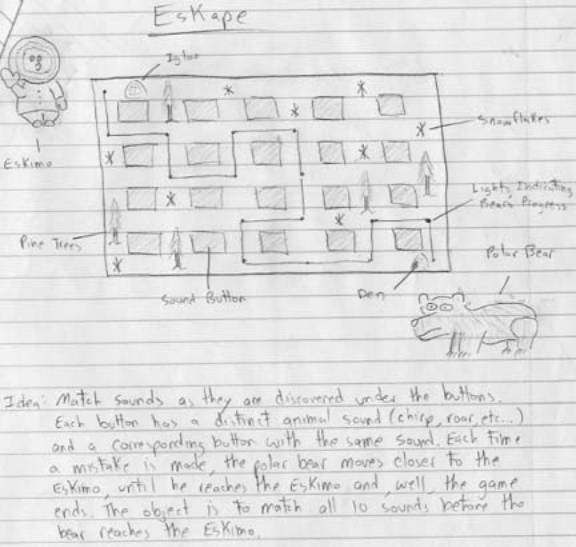 EsKape
Igloo
Snowflakes
Eskimo
Lights Indicating
Bear's Progress
Pine Trees
Polar Bear
Sound Button
Den
Idea: Match sounds as they are discovered under the buttons.
Each button has a distinct animal sound (chirp, roar, etc...)
and a corresponding button with the same sound. Each time
a mistake is made, the polar bear moves closer to the
Eskimo, until he reaches the Eskimo and, well, the game
ends. The object is to match all 10 sounds before the
bear reaches the Eskimo.